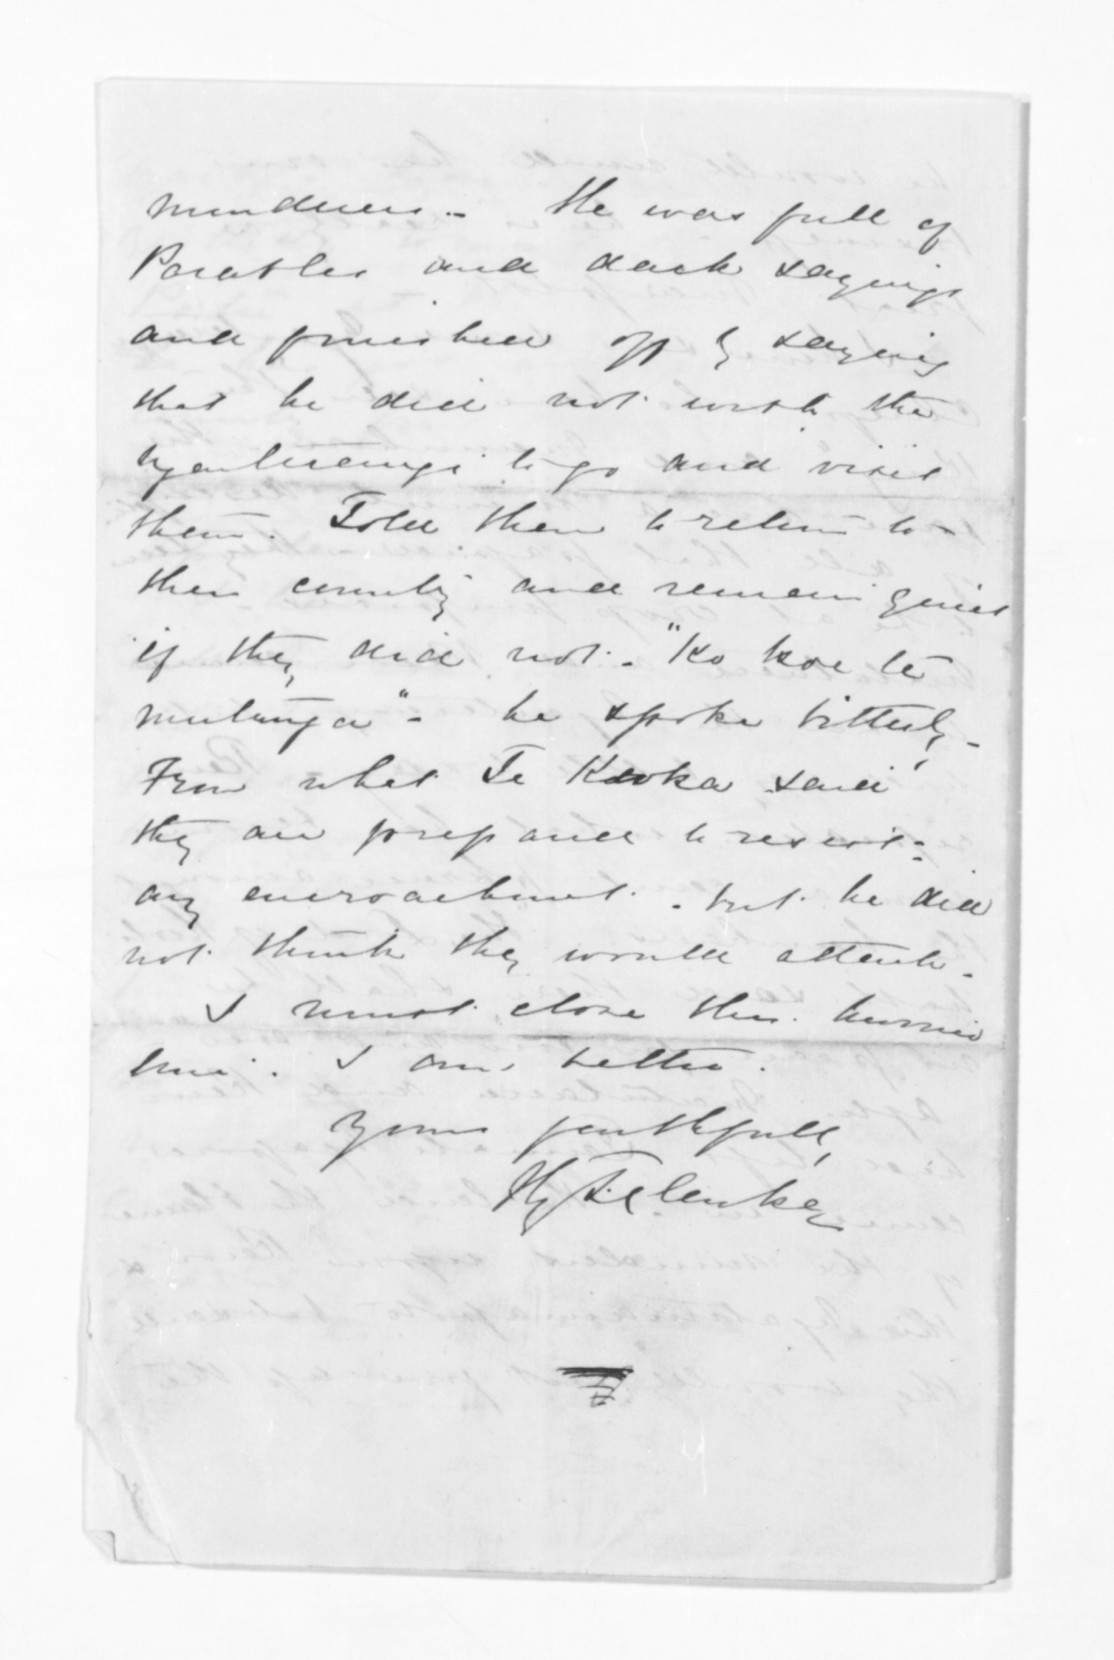 murderers. - He was full of
Parables and dark sayings
and finished off by saying
that he did not wish the
to go and visit
them. Told them to return to
their country and remain quiet
if they did not - "Ko koe te
mutunga" - he spoke bitterly -
From what Te said
they are prepared to resist
any encroachment - but he did
not think they would attack -
I must close this hurried
line. I am better.
Yours faithfully
Hy T. Clarke